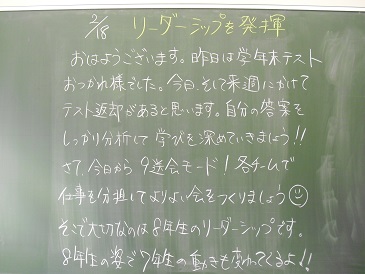 2/18 リーダーシップを発揮
おはようございます。昨日は学年末テスト
おつかれ様でした。今日、そして来週にかけて
テスト返却があると思います。自分の答案を
しっかり分析して学びを深めていきましょう!!
さて、今日から9送会モード!各チームで
仕事を分担してよりよい会をつくりましょう☺
そこで大切なのは8年生のリーダーシップです。
8年生の姿で7年生の動きも変わってくるよ!!